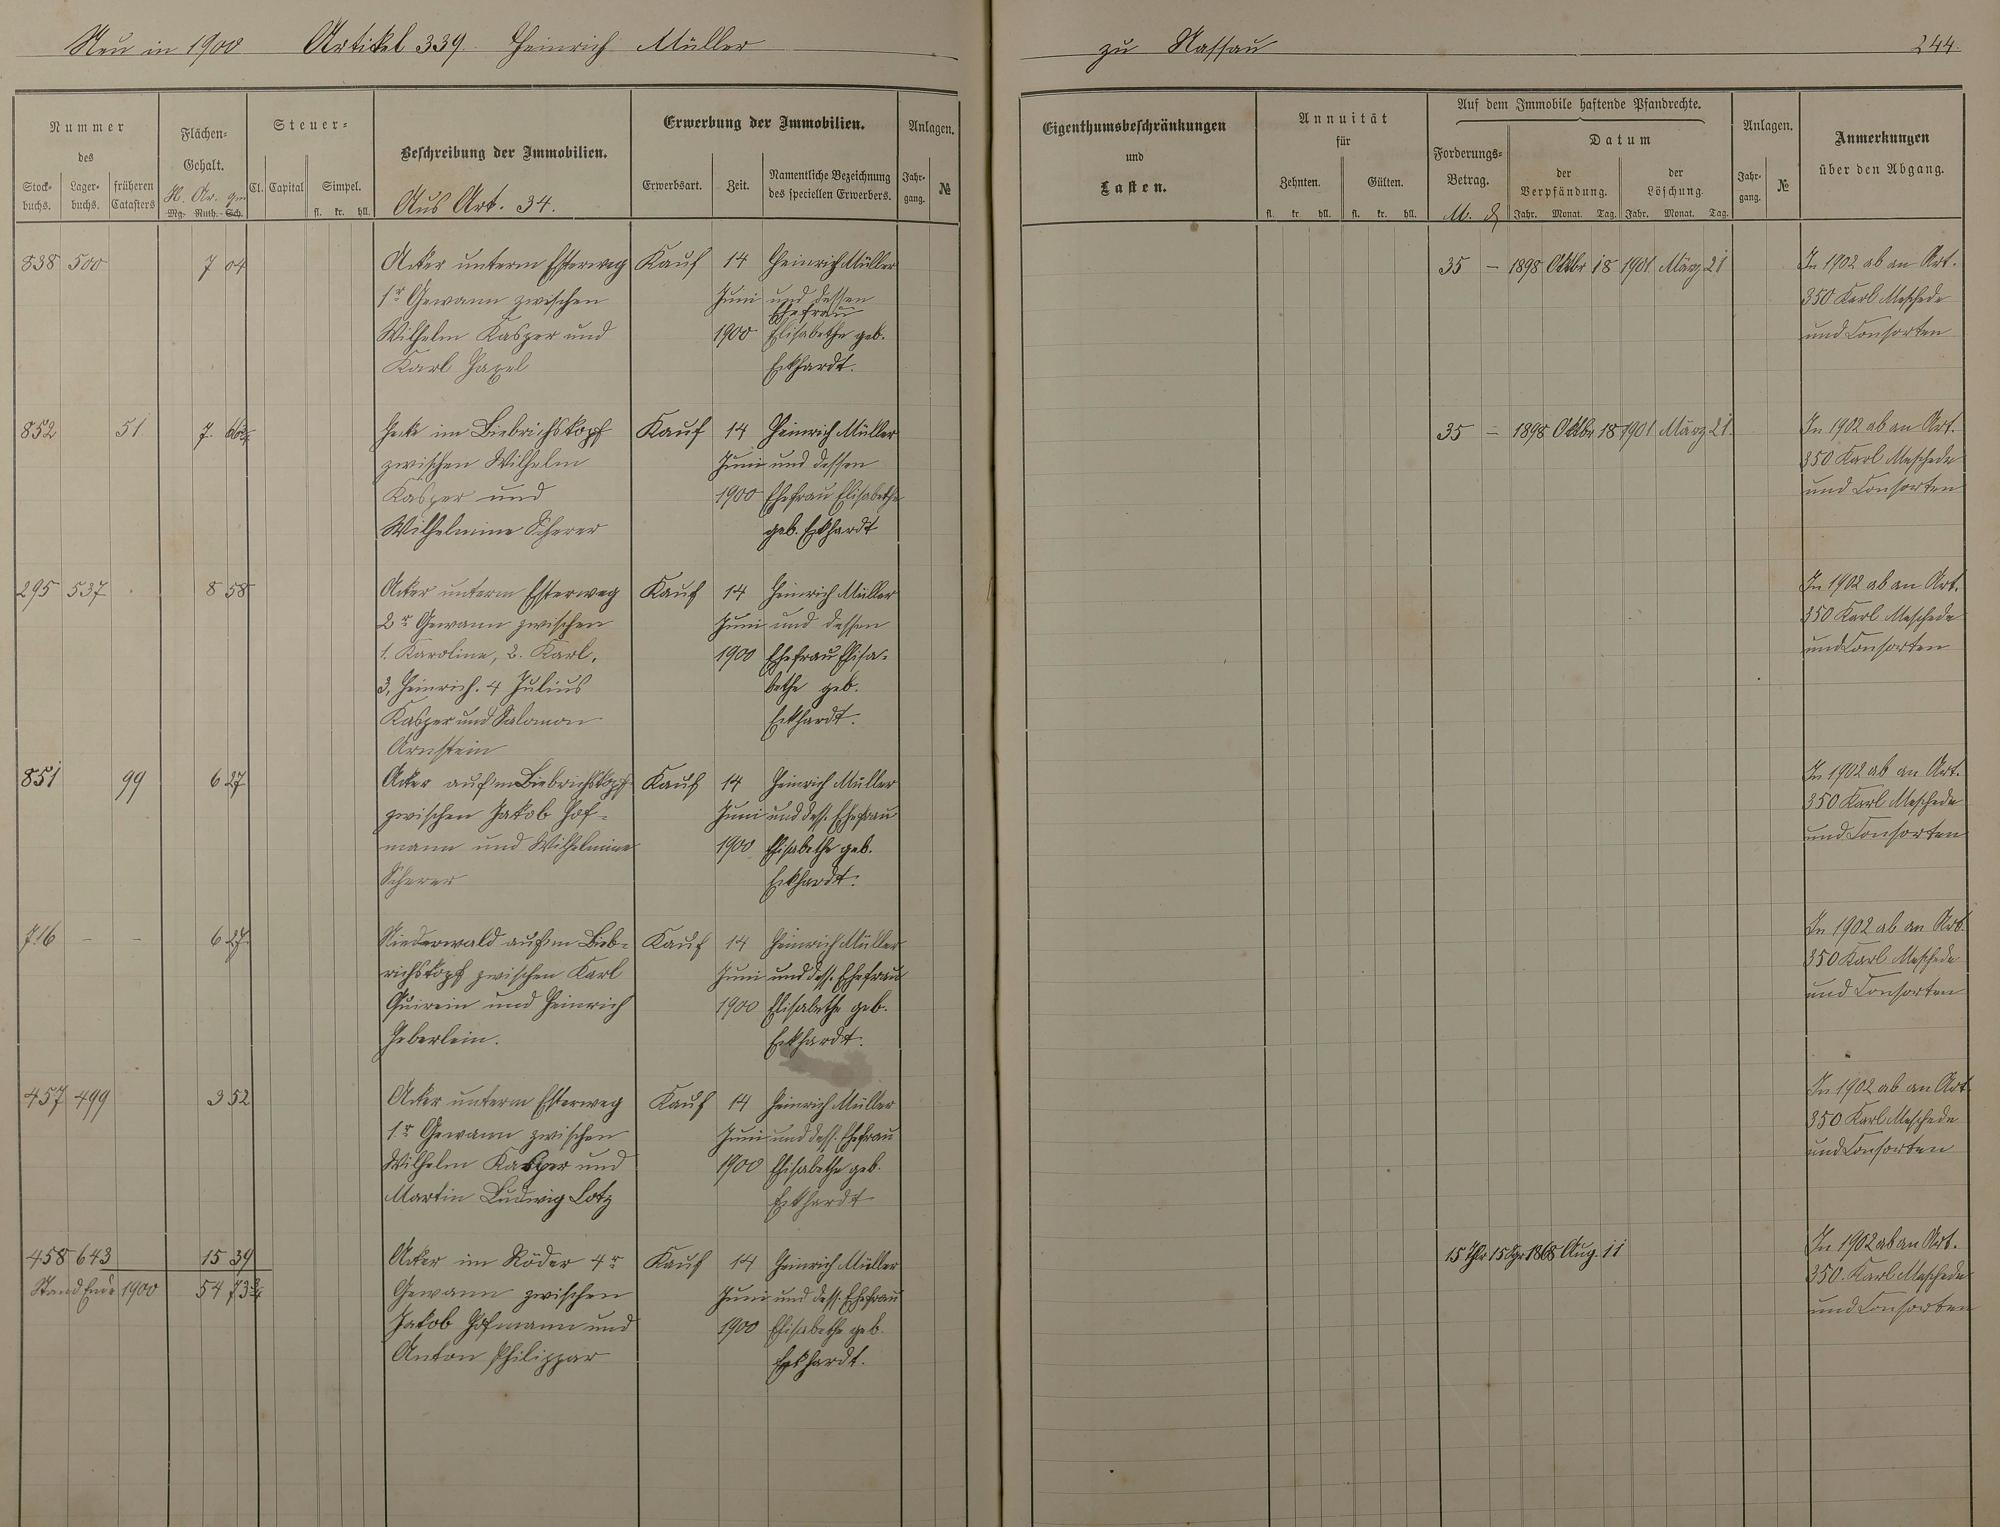 Neu in 1900 Artikel 339. Heinrich Müller
zu Nassau 244.
Nummer
des
Stock-
buchs.
Lager-
buchs.
früheren
Catasters
Flächen-
Gehalt.
H. Ar. qm
Mg. Ruth. Sch.
Steuer-
Cl. Capital Simpel.
fl. kr. hll.
Beschreibung der Immobilien.
Aus Art. 34.
Erwerbung der Immobilien.
Erwerbsart. Zeit.
Namentliche Bezeichnung
des speciellen Erwerbers.
Anlagen.
Jahr-
gang.
№
Eigenthumsbeschränkungen
und
Lasten.
Annuität
für
Zehnten. Gülten.
fl. kr. hll. fl. kr. hll.
Auf dem Immobile haftende Pfandrechte.
Forderungs-
Betrag.
M. ₰
Datum
der
Verpfändung.
der
Löschung.
Jahr. Monat. Tag. Jahr. Monat. Tag.
Anlagen.
Jahr-
gang.
№
Anmerkungen
über den Abgang.
838 500 7 04 Acker unterm Esterweg Kauf 14 Heinrich Müller
1r Gewann zwischen Juni und dessen
Ehefrau
Wilhelm Kasper und 1900 Elisabethe geb.
Karl Hazel Eckhardt.
35 – 1898 Oktbr 18 1901 März 21 In 1902 ab an Art.
350 Karl Meschede
und Consorten
852 51 7. 66 Hecke im Biebrichskopf Kauf 14 Heinrich Müller
zwischen Wilhelm Juni und dessen
Kasper und 1900 Ehefrau Elisabethe
Wilhelmine Scherer geb. Eckhardt
35 – 1898 Oktbr 18 1901 März 21. In 1902 ab an Art.
350 Karl Meschede
und Consorten
295 537 8 58 Acker unterm Esterweg Kauf 14 Heinrich Müller
2r Gewann zwischen Juni und dessen
1. Karoline, 2. Karl, 1900 Ehefrau Elisa-
3. Heinrich. 4 Julius bethe geb.
Kasper und Salomon Eckhardt.
Arnstein
In 1902 ab an Art.
350 Karl Meschede
und Consorten
851 99 6 27 Acker auf'm Biebrichskopf Kauf 14 Heinrich Müller
zwischen Jakob Hof- Juni und dess. Ehefrau
mann und Wilhelmine 1900 Elisabethe geb.
Scherer Eckhardt.
In 1902 ab an Art.
350 Karl Meschede
und Consorten
716 – – 6 27. Niederwald auf'm Bieb- Kauf 14 Heinrich Müller
richskopf zwischen Karl Juni und dess. Ehefrau
Quirein und Heinrich 1900 Elisabethe geb.
Heberlein. Eckhardt.
In 1902 ab an Art.
350 Karl Meschede
und Consorten
457 499 3 52 Acker unterm Esterweg Kauf 14 Heinrich Müller
1r Gewann zwischen Juni und dess. Ehefrau
Wilhelm Kasper und 1900 Elisabethe geb.
Martin Ludwig Lotz Eckhardt
In 1902 ab an Art.
350 Karl Meschede
und Consorten
458 643 15 39 Acker im Röder 4r Kauf 14 Heinrich Müller
Stand Ende 1900 54 73 Gewann zwischen Juni und dess. Ehefrau
Jakob Hofmann und 1900 Elisabethe geb.
Anton Philippar Eckhardt.
15 Thlr 15 Sgr 1868 Aug. 11 In 1902 ab an Art.
350. Karl Meschede
und Consorten